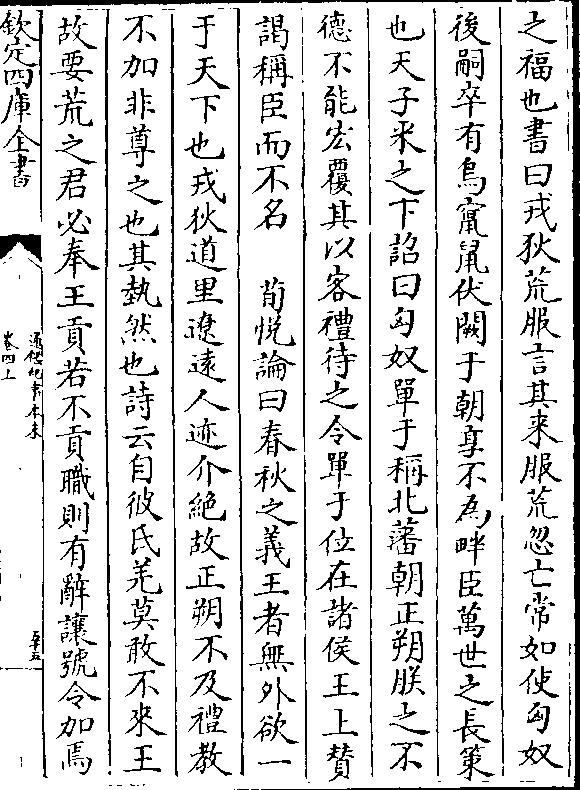 之福也書曰戎狄荒服言其来服荒忽亡常如使匈奴
後嗣卒有鳥竄鼠伏闕于朝享不為畔臣萬世之長策
也天子采之下詔曰匈奴單于稱北藩朝正朔朕之不
德不能宏覆其以客禮待之令單于位在諸侯王上賛
謁稱臣而不名　荀悦論曰春秋之義王者無外欲一
于天下也戎狄道里遼遠人迹介絶故正朔不及禮教
不加非尊之也其埶然也詩云自彼氐羌莫敢不來王
故要荒之君必奉王貢若不貢職則有辭讓號令加焉
欽定四庫全書
通鑑紀事本末
卷四上
五十五